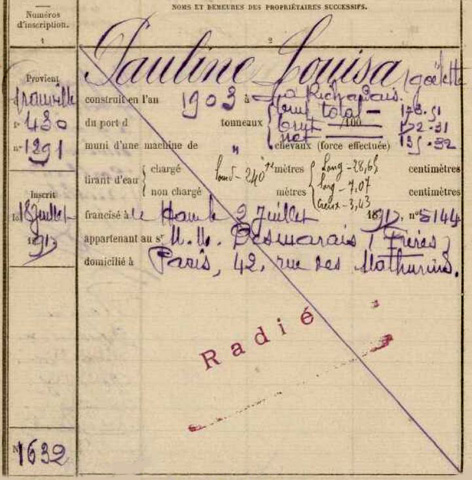 NOMS ET DEMEURES DES PROPRIÉTAIRES SUCCESSIFS.
Numéros
d'inscription.
1
2
Pauline Louisa (goélette
Provient
Trouville
n° 430
n° 1291
construit en l'an 1903 à La Richardais.
du port d tonneaux /100
brut total - 178.51
brut 172.31
net 135.32
muni d'une machine de " chevaux (force effectuée)
tirant d'eau
chargé mètres centimètres
non chargé mètres centimètres
long - 28,65
larg - 7.07
creux - 3,43
Inscrit
18 juillet
1917
francisé à le 2 juillet 1917. n° 5144
appartenant au sr M.M. Desmarais (Frères)
domicilié à Paris, 42, rue des Mathurins.
Radié
N° 1632